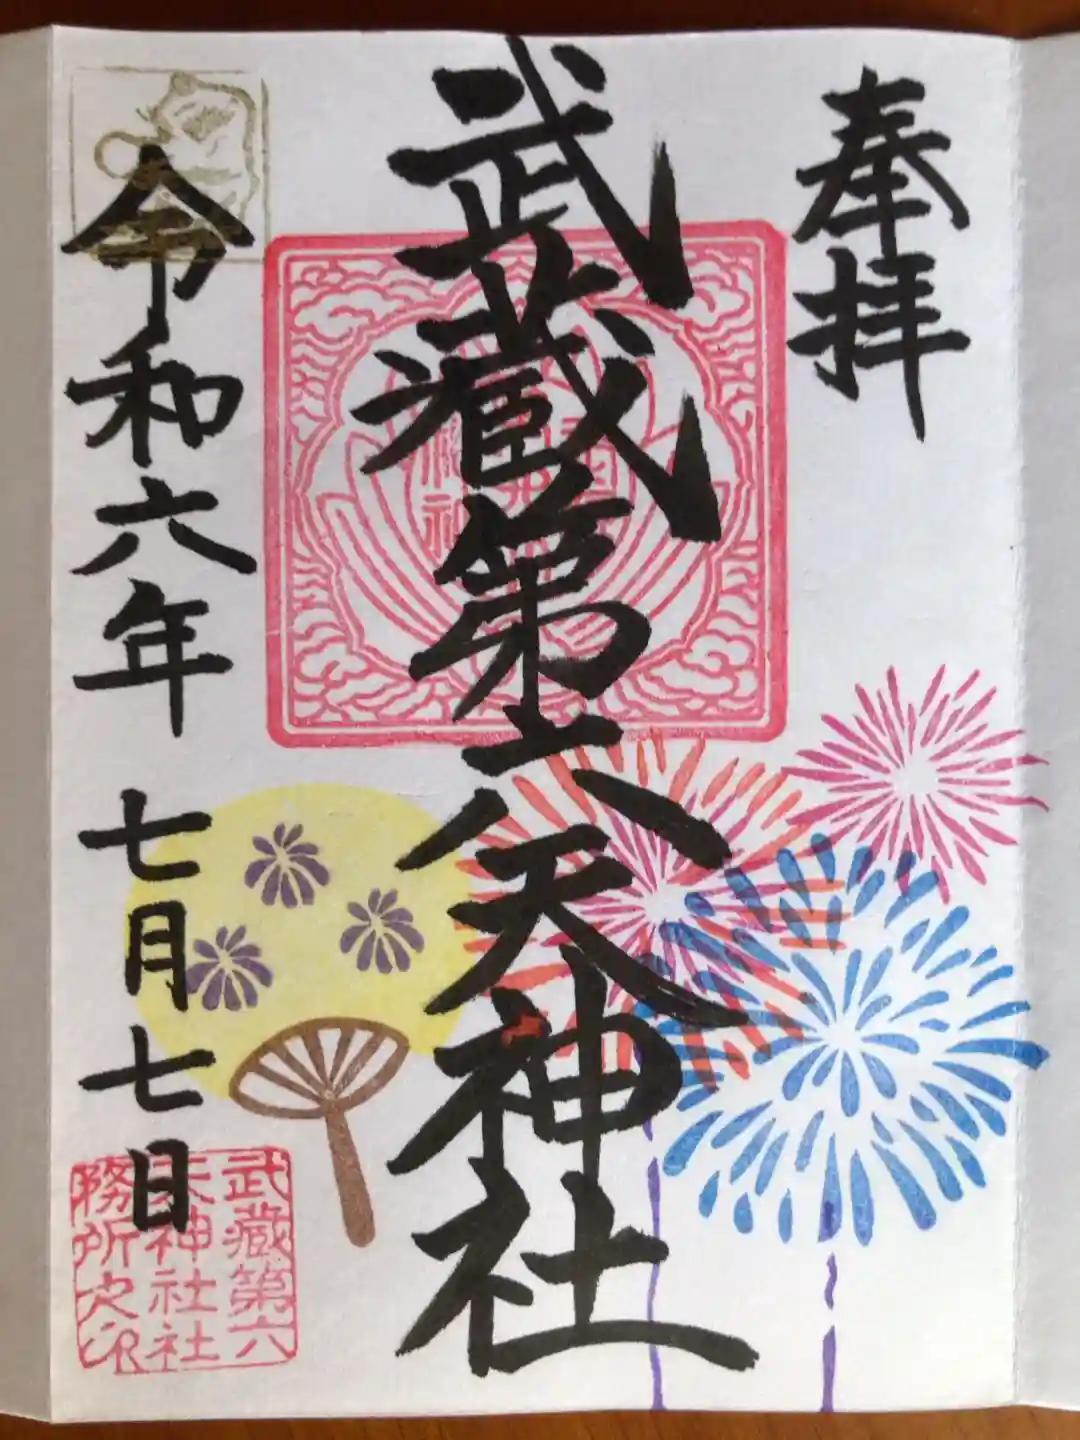 奉拝
武蔵第六天神社
令和六年 七月七日
武蔵第六
天神社社
務所之印